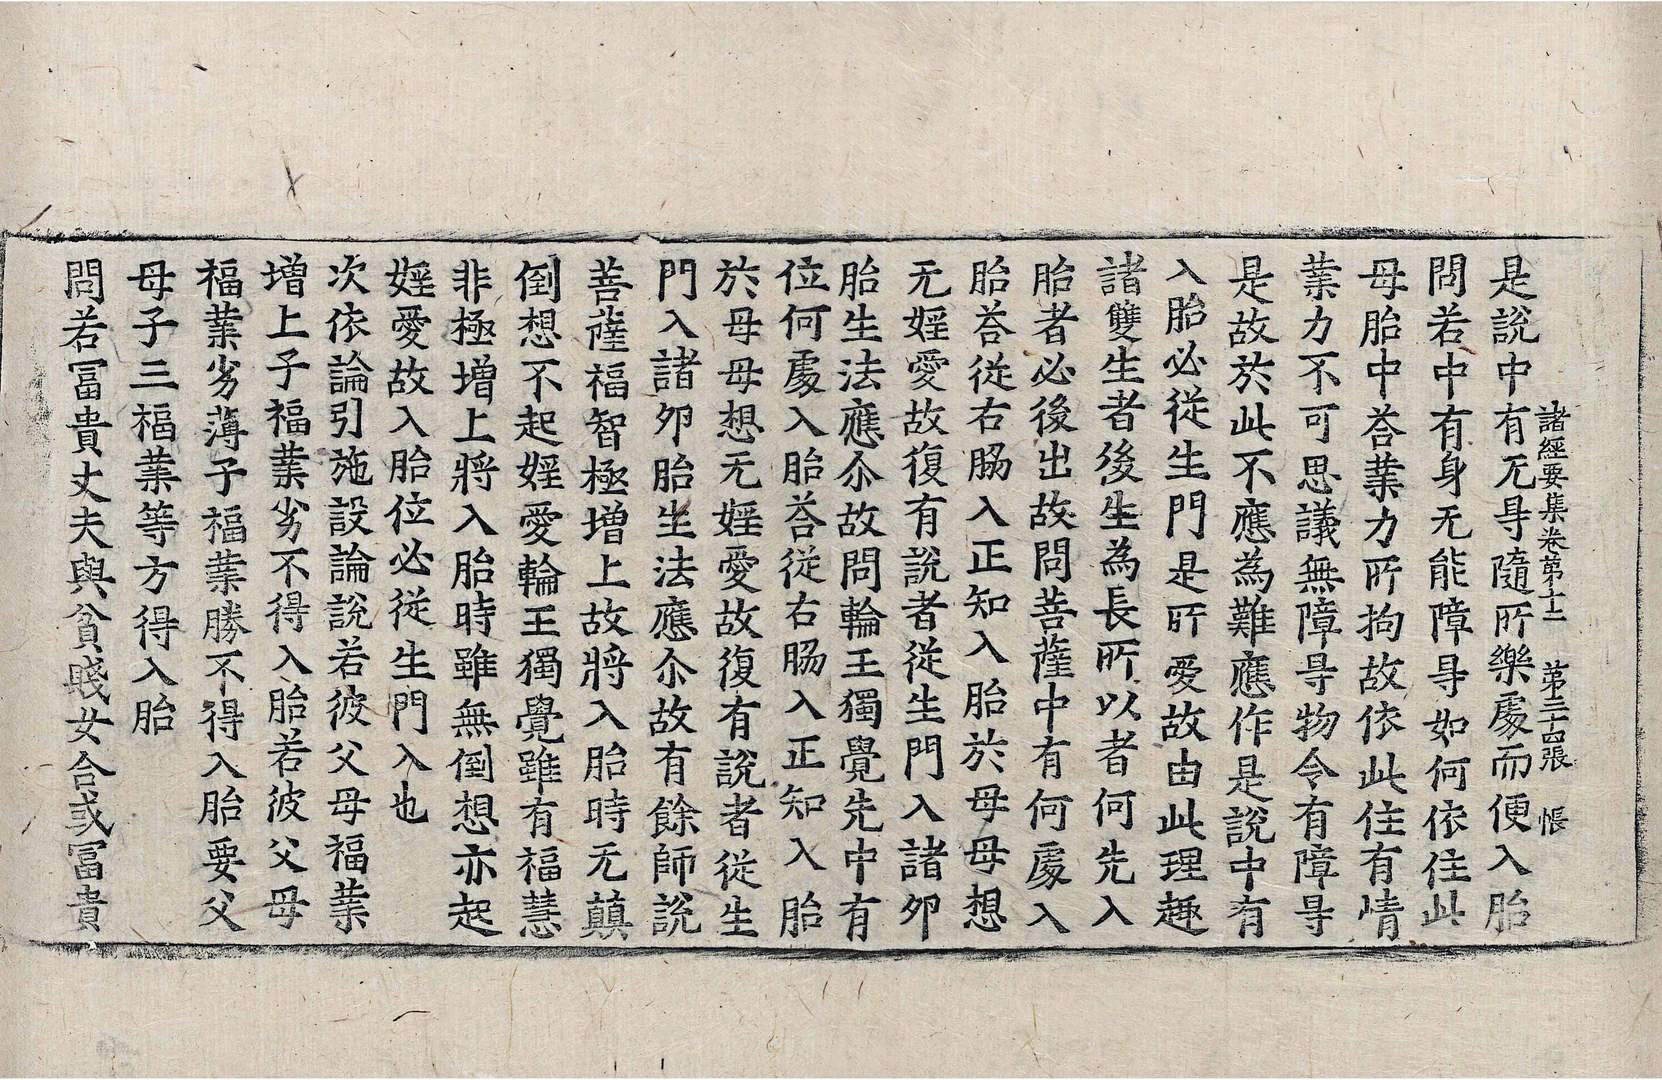 諸經要集卷第十二 第三十四張 帳
是說中有无㝵隨所樂處而便入胎
問若中有身无能障㝵如何依住此
母胎中荅業力所拘故依此住有情
業力不可思議無障㝵物令有障㝵
是故於此不應為難應作是說中有
入胎必從生門是所愛故由此理趣
諸雙生者後生為長所以者何先入
胎者必後出故問菩薩中有何處入
胎荅從右脇入正知入胎於母母想
无婬愛故復有說者從生門入諸卵
胎生法應尒故問輪王獨覺先中有
位何處入胎荅從右脇入正知入胎
於母母想无婬愛故復有說者從生
門入諸卵胎生法應尒故有餘師說
菩薩福智極增上故將入胎時无顛
倒想不起婬愛輪王獨覺雖有福慧
非極增上將入胎時雖無倒想亦起
婬愛故入胎位必從生門入也
次依論引施設論說若彼父母福業
增上子福業劣不得入胎若彼父母
福業劣薄子福業勝不得入胎要父
母子三福業等方得入胎
問若冨貴丈夫與貧賤女合或冨貴